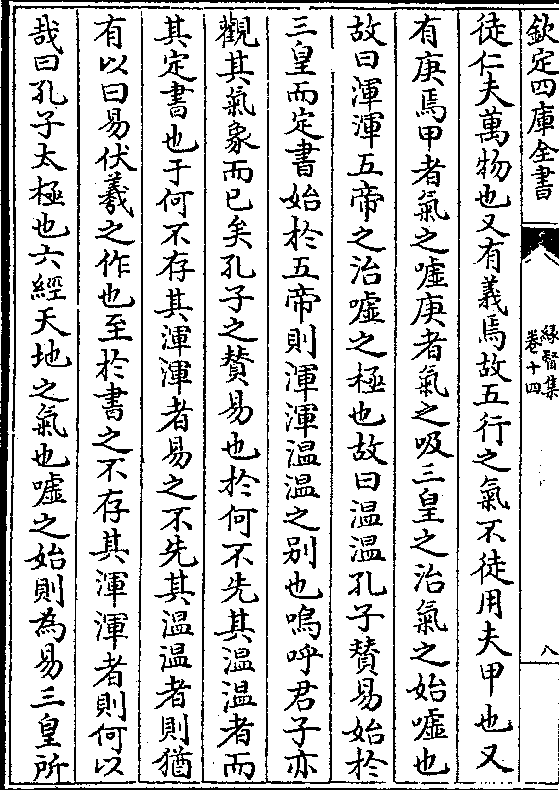 欽定四庫全書
緣督集
卷十四
八
徒仁夫萬物也又有義焉故五行之氣不徒用夫甲也又
有庚焉甲者氣之嘘庚者氣之吸三皇之治氣之始嘘也
故曰渾渾五帝之治嘘之極也故曰温温孔子賛易始於
三皇而定書始於五帝則渾渾温温之别也嗚呼君子亦
觀其氣象而已矣孔子之賛易也於何不先其温温者而
其定書也于何不存其渾渾者易之不先其温温者則猶
有以曰易伏羲之作也至於書之不存其渾渾者則何以
哉曰孔子太極也六經天地之氣也嘘之始則為易三皇所